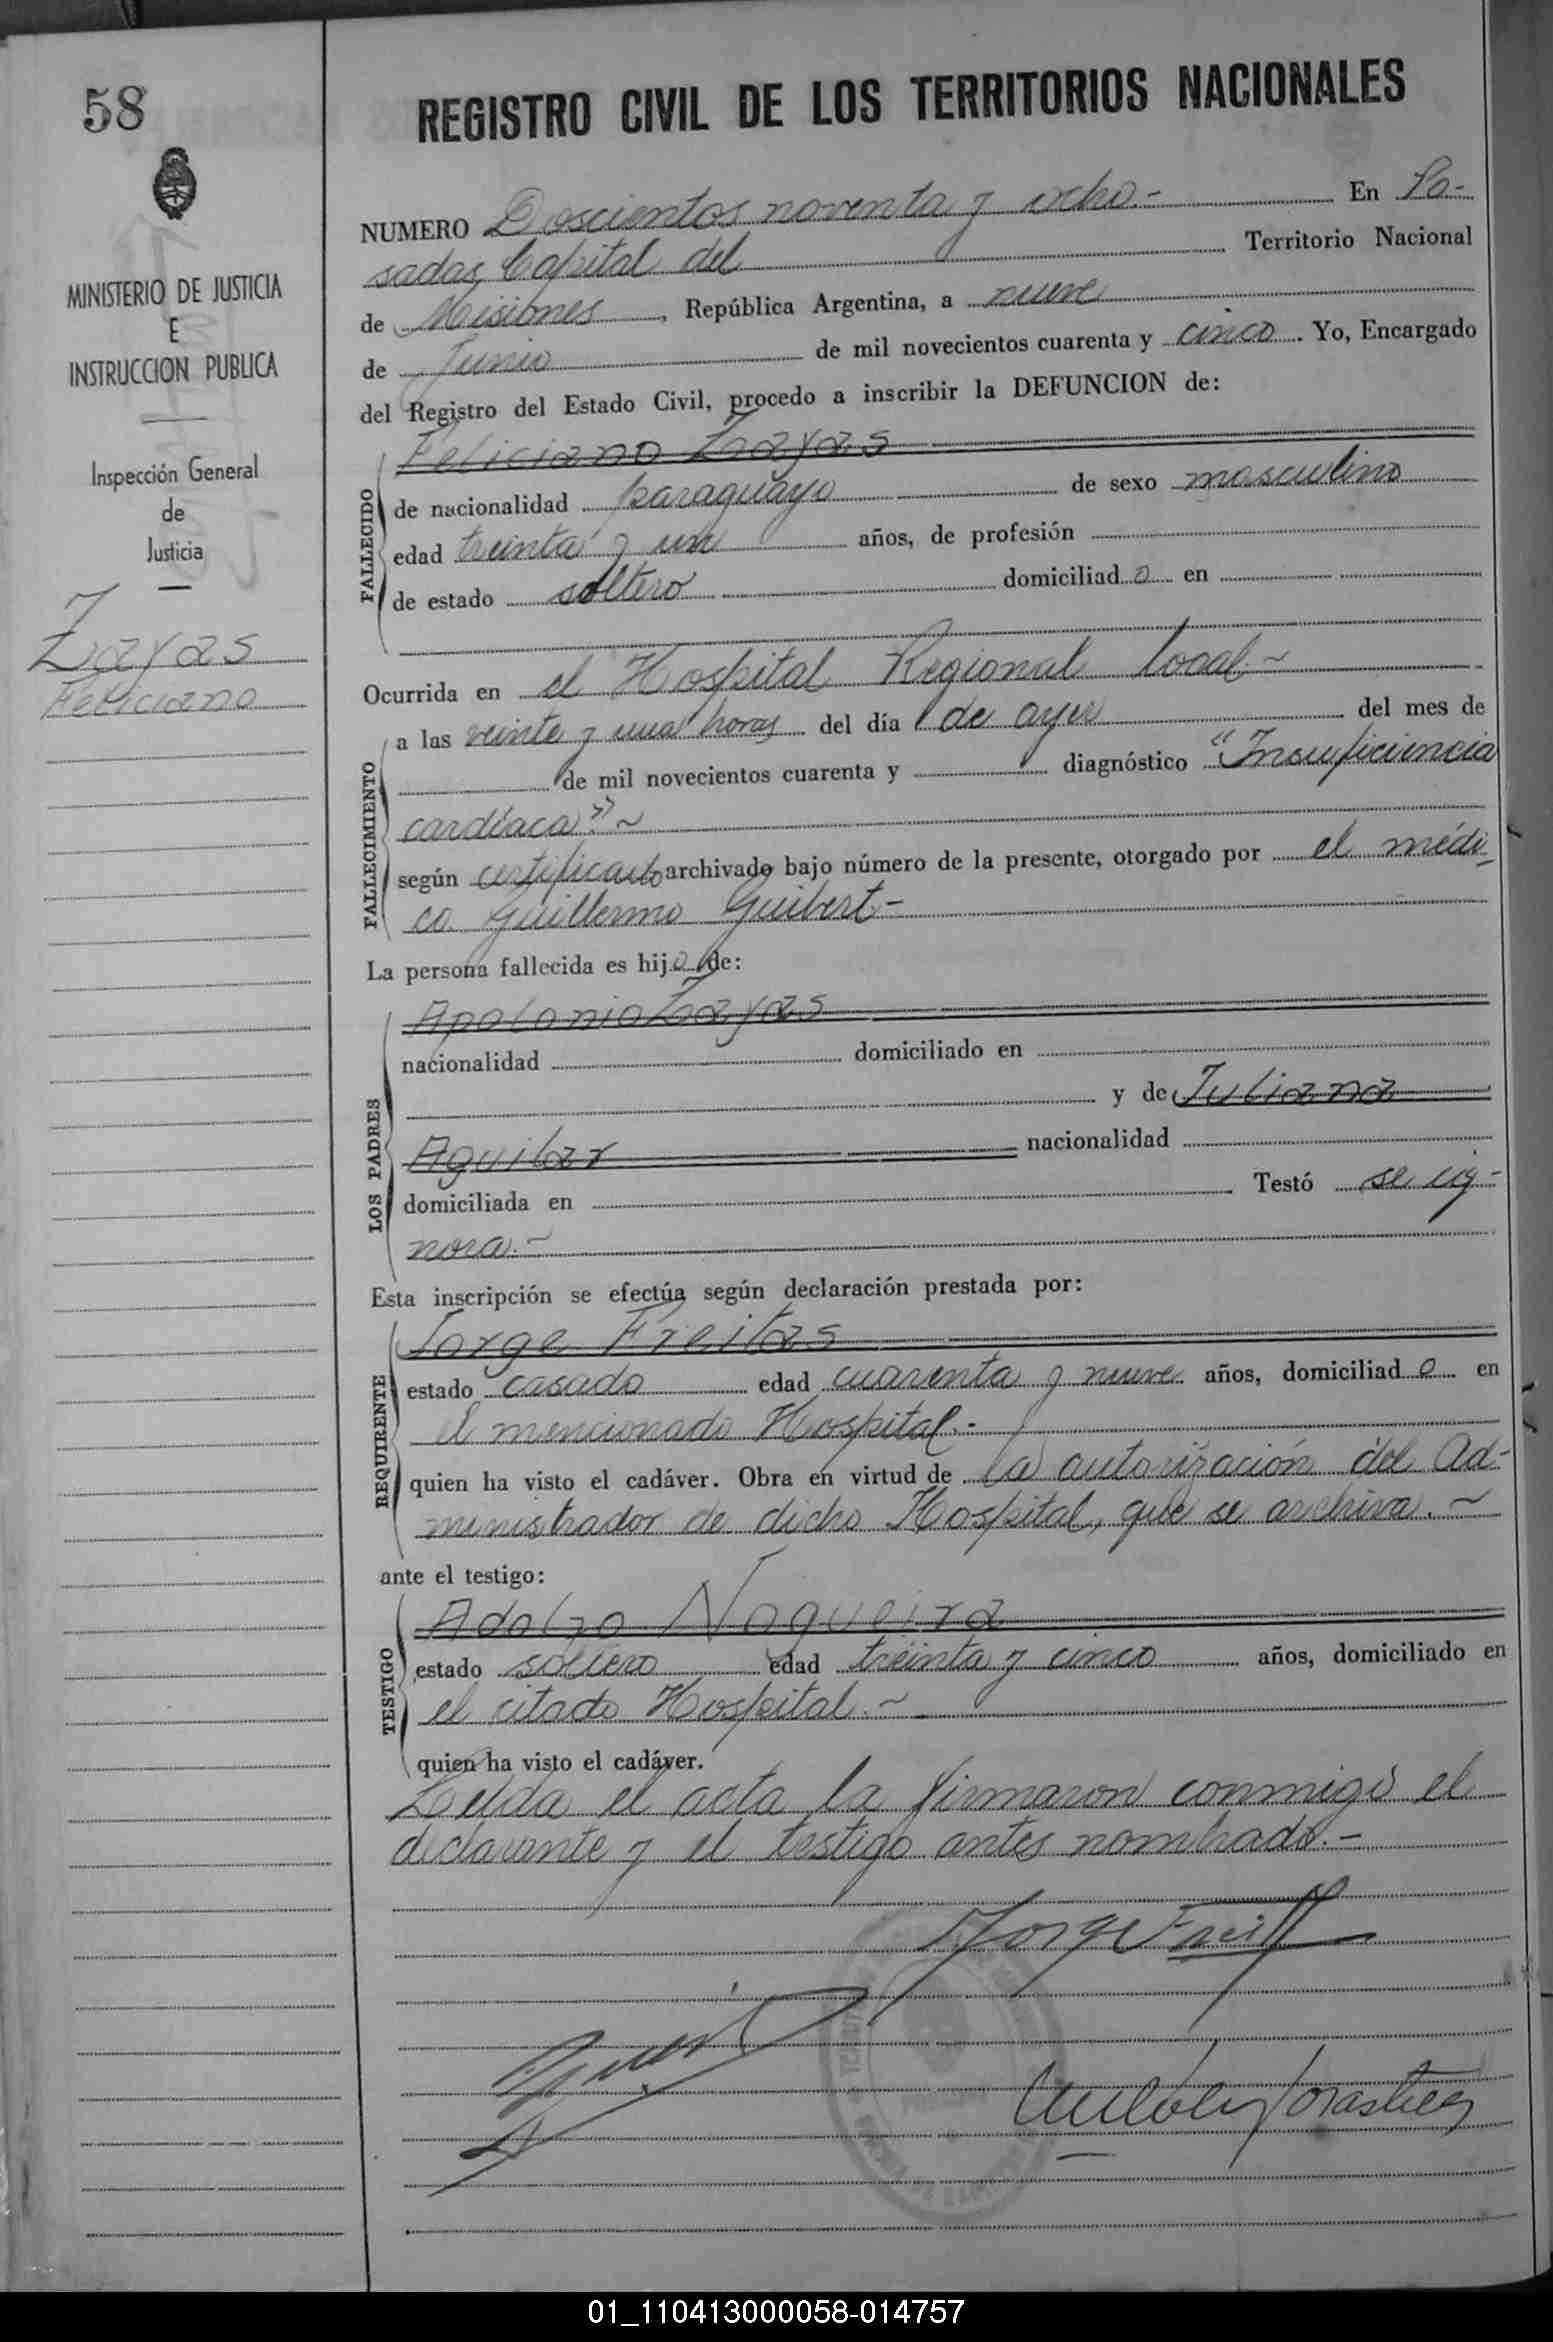 58
REGISTRO CIVIL DE LOS TERRITORIOS NACIONALES
MINISTERIO DE JUSTICIA
E
INSTRUCCION PUBLICA
Inspección General
de
Justicia
Zayas
Feliciano
NUMERO Doscientos noventa y ocho.- En Po-
sadas, Capital del Territorio Nacional
de Misiones, República Argentina, a nueve
de Junio de mil novecientos cuarenta y cinco. Yo, Encargado
del Registro del Estado Civil, procedo a inscribir la DEFUNCION de:
FALLECIDO
Feliciano Zayas
de nacionalidad paraguayo de sexo masculino
edad treinta y un años, de profesión
de estado soltero domiciliado en
Ocurrida en el Hospital Regional local.~
FALLECIMIENTO
a las veinte y una horas del día de ayer del mes de
de mil novecientos cuarenta y diagnóstico "Insuficiencia
cardíaca".~
según certificado archivado bajo número de la presente, otorgado por el médi-
co Guillermo Guibert-
La persona fallecida es hijo de:
LOS PADRES
Apolonio Zayas
nacionalidad domiciliado en
y de Juliana
Aguilar nacionalidad
domiciliada en Testó se ig-
nora.-
Esta inscripción se efectúa según declaración prestada por:
REQUIRENTE
Jorge Freitas
estado casado edad cuarenta y nueve años, domiciliado en
el mencionado Hospital.-
quien ha visto el cadáver. Obra en virtud de la autorización del Ad-
ministrador de dicho Hospital, que se archiva.~
ante el testigo:
TESTIGO
Adolfo Nogueira
estado soltero edad treinta y cinco años, domiciliado en
el citado Hospital.~
quien ha visto el cadáver.
Leída el acta la firmaron conmigo el
declarante y el testigo antes nombrado.-
01_110413000058-014757